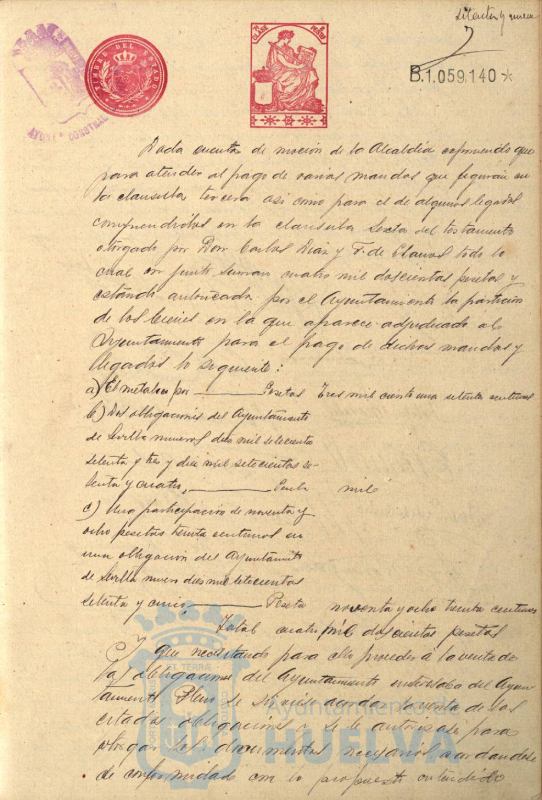 setenta y nueve
TIMBRE DEL ESTADO
B.1.059.140
Dada cuenta de moción de la Alcaldía exponiendo que
para atender al pago de varias mandas que figuran en
la clausula tercera así como para el de algunos legados
comprendidos en la clausula sexta del testamento
otorgado por Don Carlos Diaz y F. de Clauos todo lo
cual en junto suman cuatro mil doscientas pesetas y
estando autorizada por el Ayuntamiento la partición
de los bienes en la que aparece adjudicado al
Ayuntamiento para el pago de dichas mandas y
legados lo siguiente:
a) El metalico por ——— Pesetas Tres mil ciento una setenta centimos
b) Dos obligaciones del Ayuntamiento
de Sevilla numeros diez mil setecientos
setenta y tres y diez mil setecientos se-
tenta y cuatro, ——— Pesetas mil
c) Una participación de noventa y
ocho pesetas treinta centimos en
una obligación del Ayuntamiento
de Sevilla numero diez mil setecientos
setenta y cinco ——— Pesetas noventa y ocho treinta centimos
Total cuatro mil doscientas pesetas
Y que necesitando para ello proceder a la venta de
las obligaciones del Ayuntamiento del Ayun-
tamiento Pleno se sirviese acordar la venta de las
citadas obligaciones y se le autorizase para
otorgar los documentos necesarios acordandose
de conformidad con lo propuesto
Ayuntamiento de
HUELVA